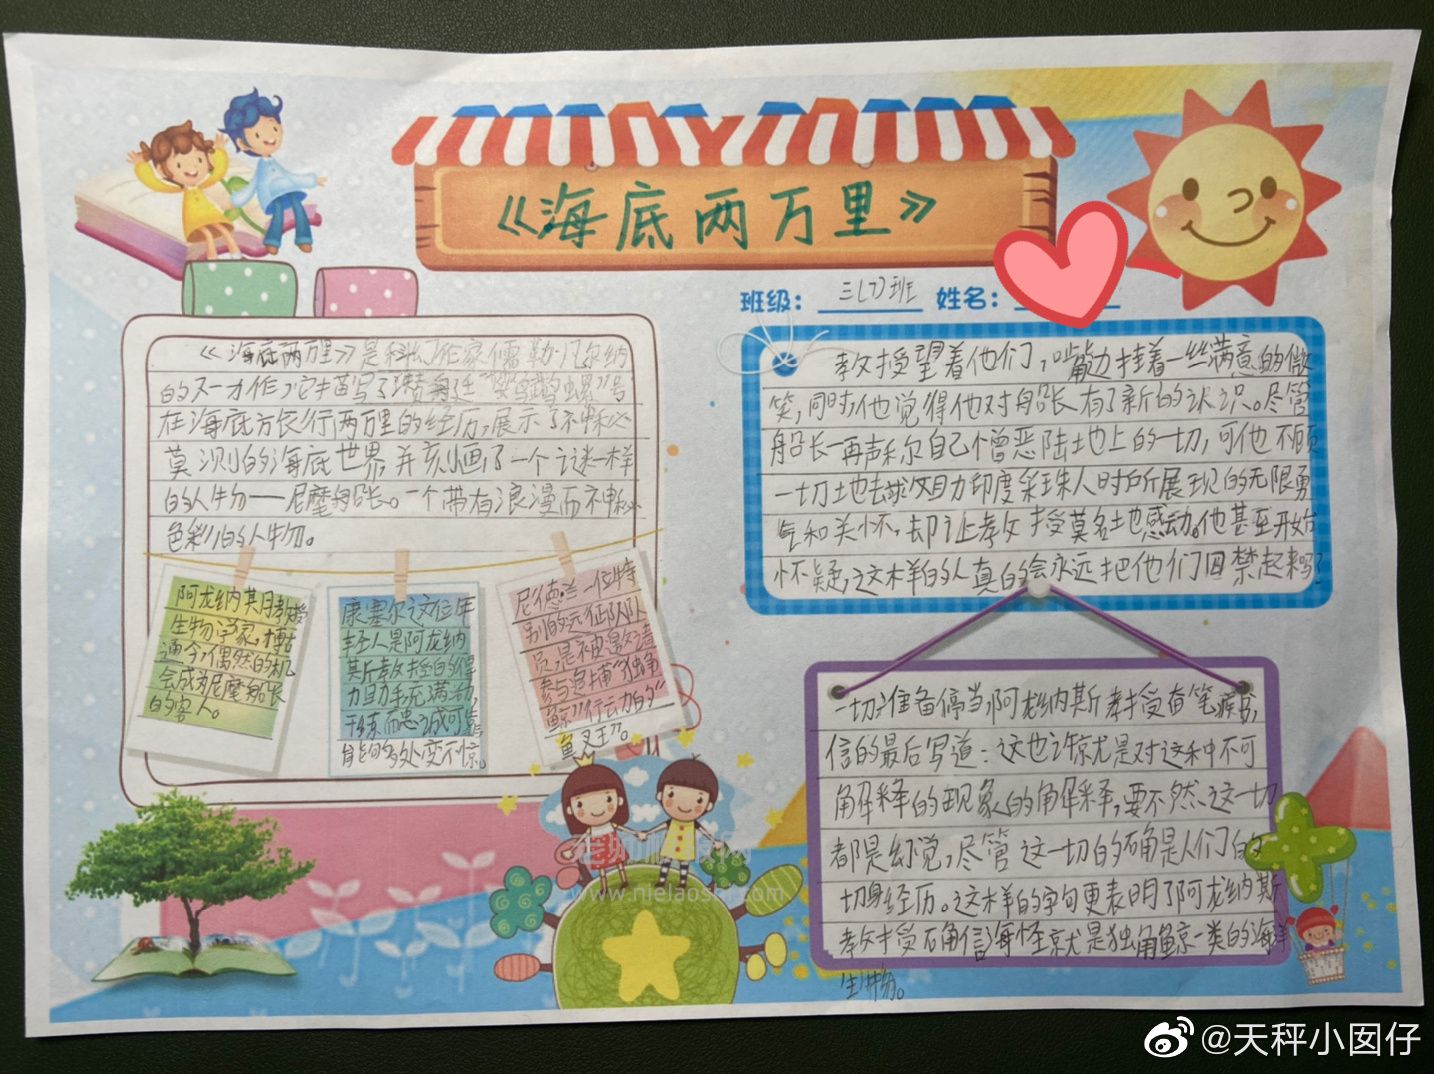 《海底两万里》
班级： 三(7)班 姓名：
《海底两万里》是科幻作家儒勒·凡尔纳
的又一力作，它描写了潜艇"鹦鹉螺"号
在海底方长行两万里的经历，展示了神秘
莫测的海底世界，并刻画了一个谜一样
的人物——尼摩船长。一个带有浪漫而神秘
色彩的人物。
阿龙纳其月教授
生物学家，博古
通今，偶然的机
会成为尼摩船长
的客人。
康塞尔这位年
轻人是阿龙纳
其斤教授的得
力助手充满活，
干练而忠诚可靠
能的多处变不惊。
尼德·兰一位特
别的远征队队
员，是被邀请者
参与追捕"独角
鲸"行动的"
鱼叉王"。
教授望着他们，嘴边挂着一丝满意的微
笑，同时，他觉得他对船长有了新的认识。尽管
船长一再声称自己憎恶陆地上的一切，可他不顾
一切地去救助印度采珠人时所展现的无限勇
气和关怀，却让教授莫名地感动。他甚至开始
怀疑，这样的人真的会永远把他们囚禁起来吗？
一切准备停当，阿龙纳斯教授奋笔疾书，
信的最后写道：这也许就是对这种不可
解释的现象的解释，要不然，这一切
都是幻觉，尽管这一切的确是人们的
切身经历。这样的字句更表明了阿龙纳斯
教授确信海怪就是独角鲸一类的海洋
生物。
www.nielaoshi.com
@天秤小囡仔